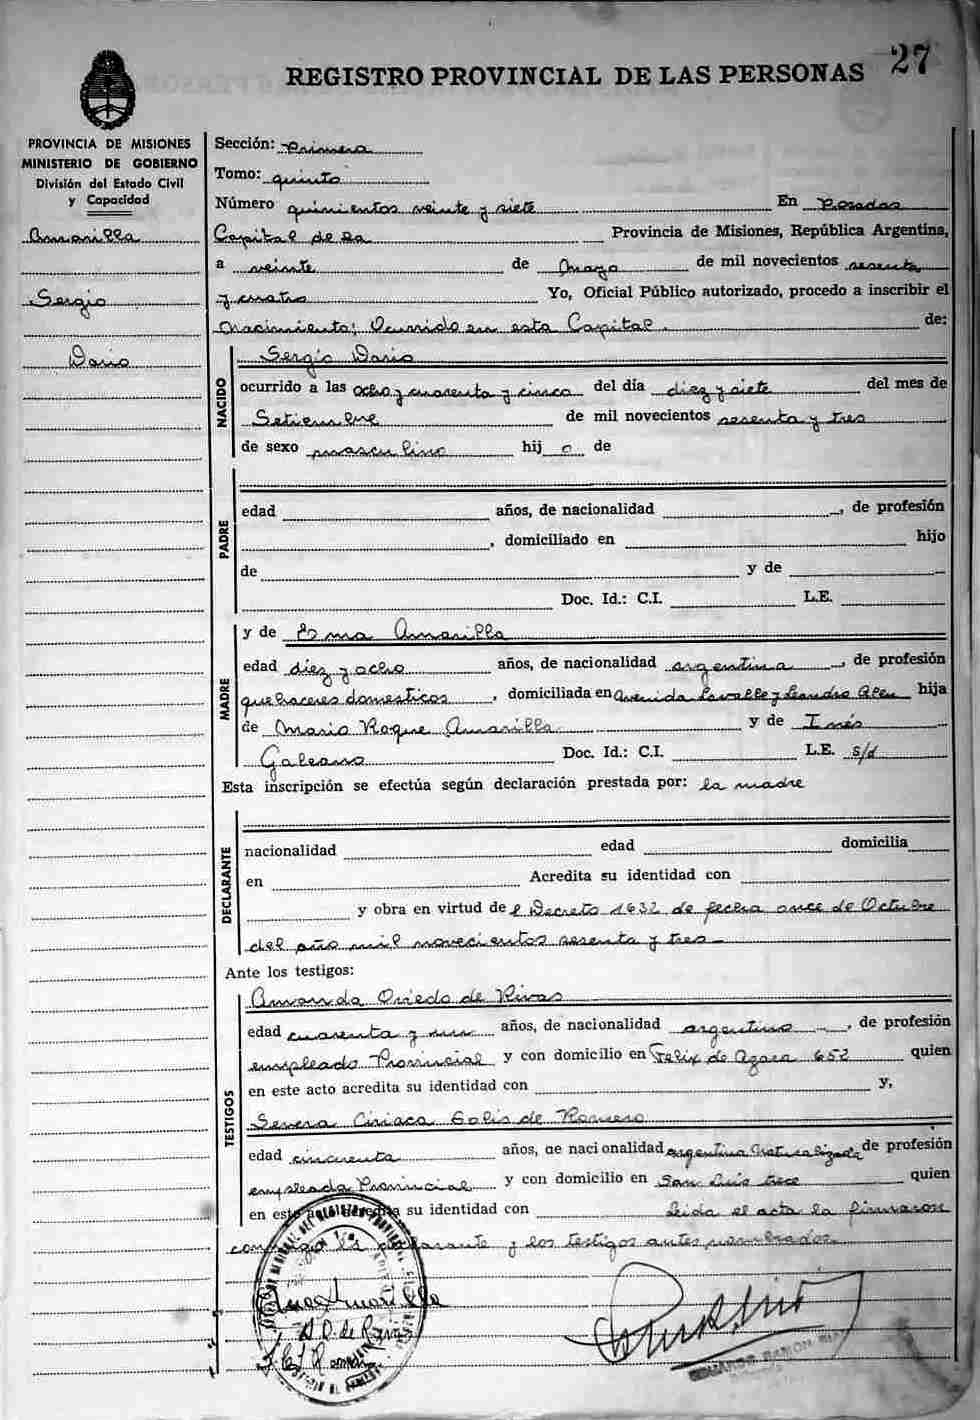 27
REGISTRO PROVINCIAL DE LAS PERSONAS
PROVINCIA DE MISIONES
MINISTERIO DE GOBIERNO
División del Estado Civil
y Capacidad
Amarilla
Sergio
Dario
Sección: Primera
Tomo: quinto
Número quinientos veinte y siete En Posadas
Capital de la Provincia de Misiones, República Argentina,
a veinte de Mayo de mil novecientos sesenta
y cuatro Yo, Oficial Público autorizado, procedo a inscribir el
Nacimiento; Ocurrido en esta Capital. de:
NACIDO
Sergio Dario
ocurrido a las ocho y cuarenta y cinco del día diez y siete del mes de
Setiembre de mil novecientos sesenta y tres
de sexo masculino hij o de
PADRE
edad años, de nacionalidad , de profesión
, domiciliado en hijo
de y de
Doc. Id.: C.I. L.E.
MADRE
y de Esma Amarilla
edad diez y ocho años, de nacionalidad argentina , de profesión
quehaceres domesticos , domiciliada en Avenida Lavalle y Leandro Alen hija
de Mario Roque Amarilla y de Inés
Galeano Doc. Id.: C.I. L.E. s/d
Esta inscripción se efectúa según declaración prestada por: la madre
DECLARANTE
nacionalidad edad domicilia
en Acredita su identidad con
y obra en virtud de l Decreto 1632 de fecha once de Octubre
del año mil novecientos sesenta y tres
Ante los testigos:
TESTIGOS
Amanda Oviedo de Rivas
edad cuarenta y un años, de nacionalidad argentino , de profesión
empleado Provincial y con domicilio en Felix de Azara 652 quien
en este acto acredita su identidad con y,
Severa Ciriaca Solis de Romero
edad cincuenta años, de nacionalidad argentina Naturalizada de profesión
empleada Provincial y con domicilio en San Luis trece quien
en este acto acredita su identidad con Leida el acta la firmaron
conmigo la declarante y los testigos antes nombrados.
A. O. de Rivas